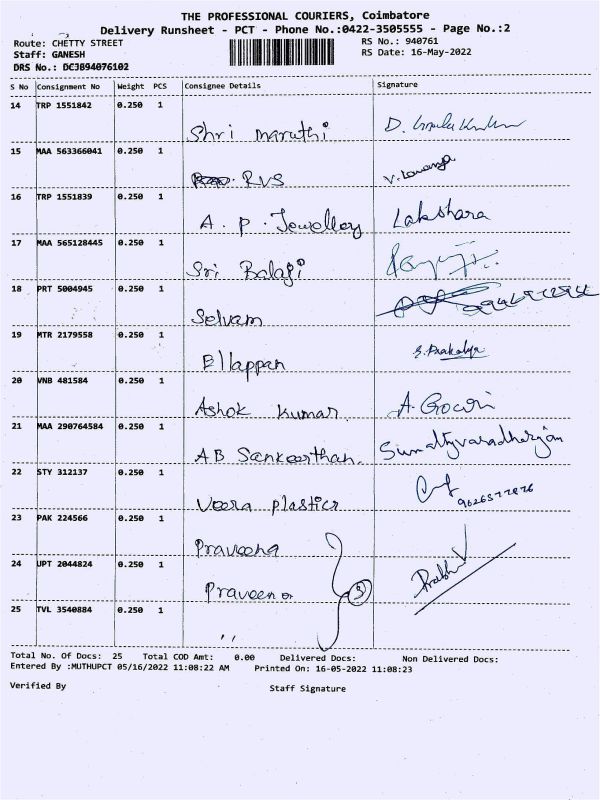 THE PROFESSIONAL COURIERS, Coimbatore
Delivery Runsheet - PCT - Phone No.:0422-3505555 - Page No.:2
Route: CHETTY STREET RS No.: 940761
Staff: GANESH RS Date: 16-May-2022
DRS No.: DCJB94076102
S No Consignment No Weight PCS Consignee Details Signature
14 TRP 1551842 0.250 1
Shri maruthi
15 MAA 563366041 0.250 1
RVS V. Lavanya
16 TRP 1551839 0.250 1
A. P. Jewellery Lakshara
17 MAA 565128445 0.250 1
Sri Balaji
18 PRT 5004945 0.250 1
Selvam
19 MTR 2179558 0.250 1
Ellappan S. Prakalya
20 VNB 481584 0.250 1
Ashok Kumar A. Gowri
21 MAA 290764584 0.250 1
AB Sankeerthan.
22 STY 312137 0.250 1
Veera plastics
23 PAK 224566 0.250 1
Praveena
24 UPT 2044824 0.250 1
Praveena 3 Prabhu
25 TVL 3540884 0.250 1
,,
Total No. Of Docs: 25 Total COD Amt: 0.00 Delivered Docs: Non Delivered Docs:
Entered By :MUTHUPCT 05/16/2022 11:08:22 AM Printed On: 16-05-2022 11:08:23
Verified By Staff Signature